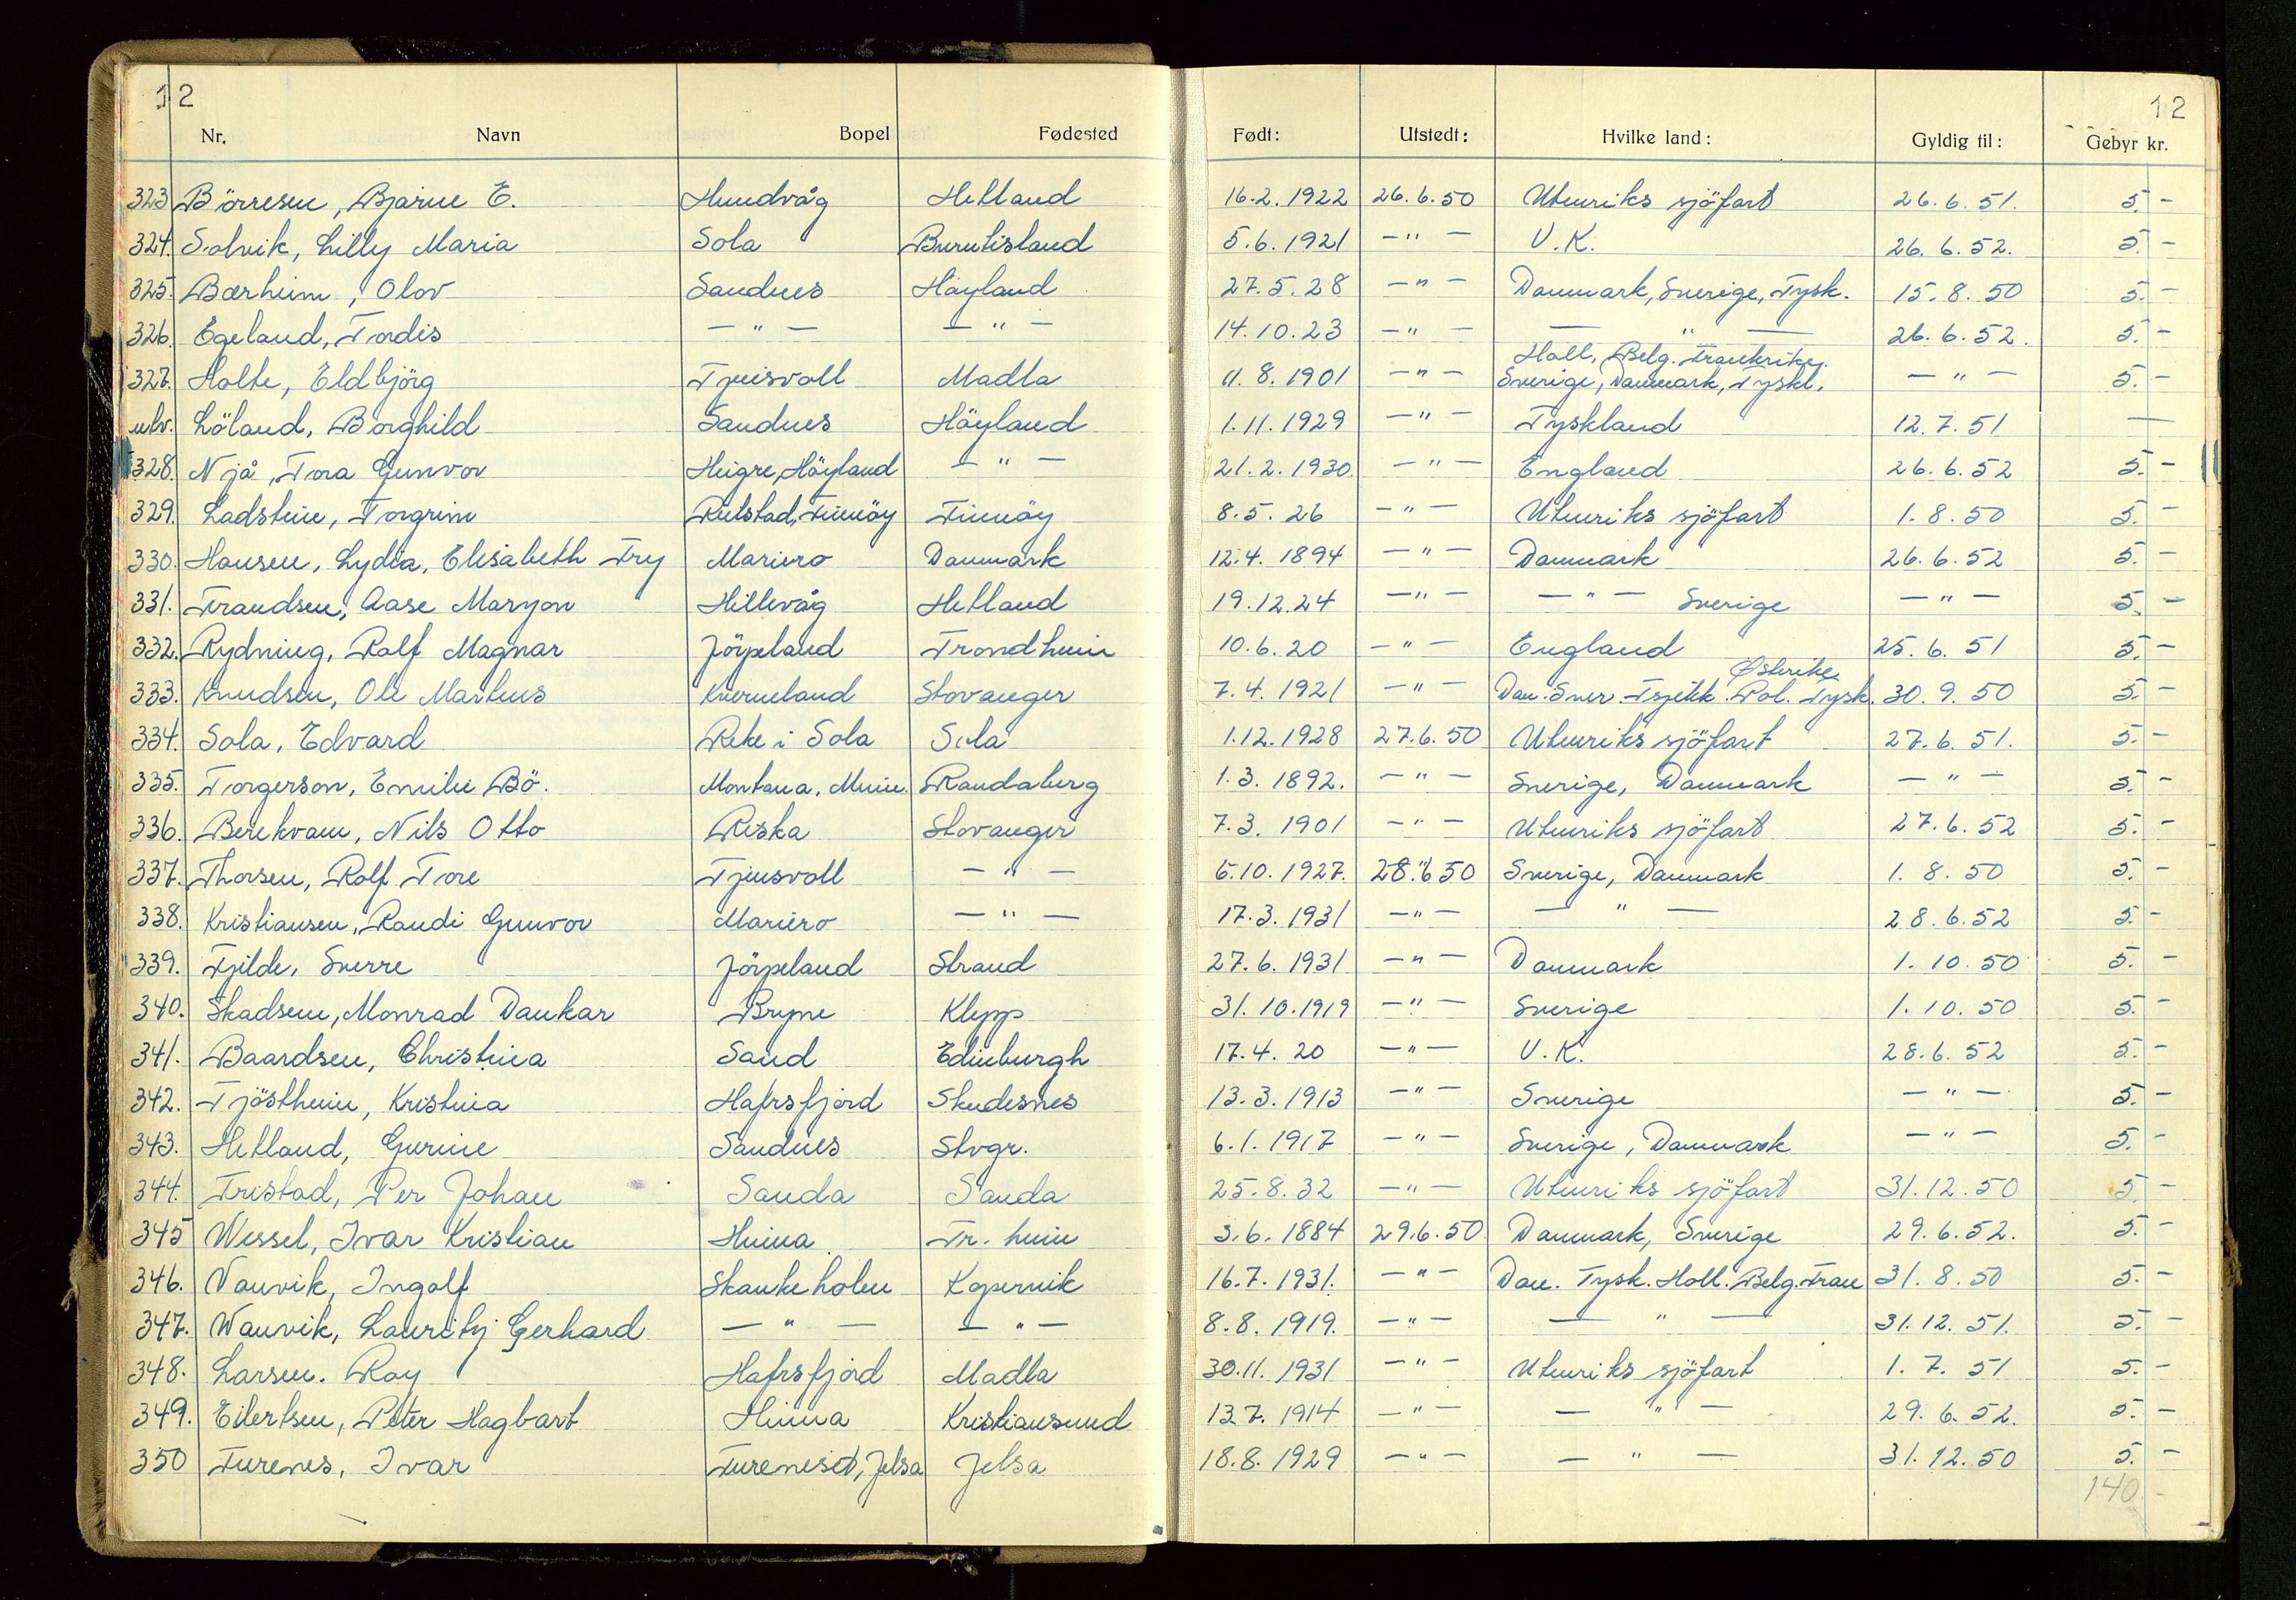 12 12
Nr. Navn Bopel Fødested Født: Utstedt: Hvilke land: Gyldig til: Gebyr kr.
323 Börresen, Bjarne E. Hundvåg Hetland 16.2.1922 26.6.50 Utenriks sjöfart 26.6.51. 5.-
324. Solvik, Lilly Maria Sola Burntisland 5.6.1921 -"- U.K. 26.6.52. 5.-
325. Bærheim, Olov Sandnes Höyland 27.5.28 -"- Danmark, Sverige, Tysk. 15.8.50 5.-
326. Egeland, Tordis -"- -"- 14.10.23 -"- -"- 26.6.52. 5.-
Holl, Belg. Frankrike,
327. Holte, Eldbjörg Tjensvoll Madla 11.8.1901 -"- Sverige, Danmark, Tyskl. -"- 5.-
ulv. Löland, Borghild Sandnes Höyland 1.11.1929 -"- Tyskland 12.7.51 -
328. Njå, Tora Gunvor Heigre, Höyland -"- 21.2.1930. -"- England 26.6.52 5.-
329. Ladstein, Torgrim Reilstad, Finnöy Finnöy 8.5.26 -"- Utenriks sjöfart 1.8.50 5.-
330. Hansen, Lydia, Elisabeth Fry Mariero Danmark 12.4.1894 -"- Danmark 26.6.52 5.-
331. Frandsen, Aase Maryon Hillevåg Hetland 19.12.24 -"- -"- Sverige -"- 5.-
332. Rydning, Ralf Magnar Jörpeland Trondheim 10.6.20 -"- England 25.6.51 5.-
Østerike
333. Knudsen, Ole Martens Kverneland Stovanger 7.4.1921 -"- Dan. Sver. Tsjekk. Pol. Tysk. 30.9.50 5.-
334. Sola, Edvard Reke i Sola Sola 1.12.1928 27.6.50 Utenriks sjöfart 27.6.51. 5.-
335. Torgerson, Emilie Bö. Montana, Minn. Randaberg 1.3.1892. -"- Sverige, Danmark -"- 5.-
336. Berekvam, Nils Otto Riska Stovanger 7.3.1901 -"- Utenriks sjöfart 27.6.52 5.-
337. Thorsen, Rolf Tore Tjensvoll -"- 6.10.1927. 28.6.50 Sverige, Danmark 1.8.50 5.-
338. Kristiansen, Randi Gunvor Mariero -"- 17.3.1931 -"- -"- 28.6.52 5.-
339. Fjelde, Sverre Jörpeland Strand 27.6.1931 -"- Danmark 1.10.50 5.-
340. Skadsem, Monrad Dankar Bryne Klepp 31.10.1919 -"- Sverige 1.10.50 5.-
341. Baardsen, Christina Sand Edinburgh 17.4.20 -"- U.K. 28.6.52 5.-
342. Tjöstheim, Kristina Hafrsfjord Skudesnes 13.3.1913 -"- Sverige -"- 5.-
343. Hetland, Gurine Sandnes Stvgr. 6.1.1917 -"- Sverige, Danmark -"- 5.-
344. Tristad, Per Johan Sauda Sauda 25.8.32 -"- Utenriks sjöfart 31.12.50 5.-
345 Wessel, Ivar Kristian Hinna Tr. heim 3.6.1884 29.6.50. Danmark, Sverige 29.6.52. 5.-
346. Vanvik, Ingolf Skankeholen Kopervik 16.7.1931. -"- Dan. Tysk. Holl. Belg. Fran 31.8.50 5.-
347. Wanvik, Lauritz Gerhard -"- -"- 8.8.1919. -"- -"- 31.12.51. 5.-
348. Larsen. Roy Hafrsfjord Madla 30.11.1931 -"- Utenriks sjöfart 1.7.51 5.-
349. Eilertsen, Peter Hagbart Hinna Kristiansund 13.7.1914 -"- -"- 29.6.52. 5.-
350 Furenes, Ivar Fureneset, Jelsa Jelsa 18.8.1929 -"- -"- 31.12.50 5.-
140.-